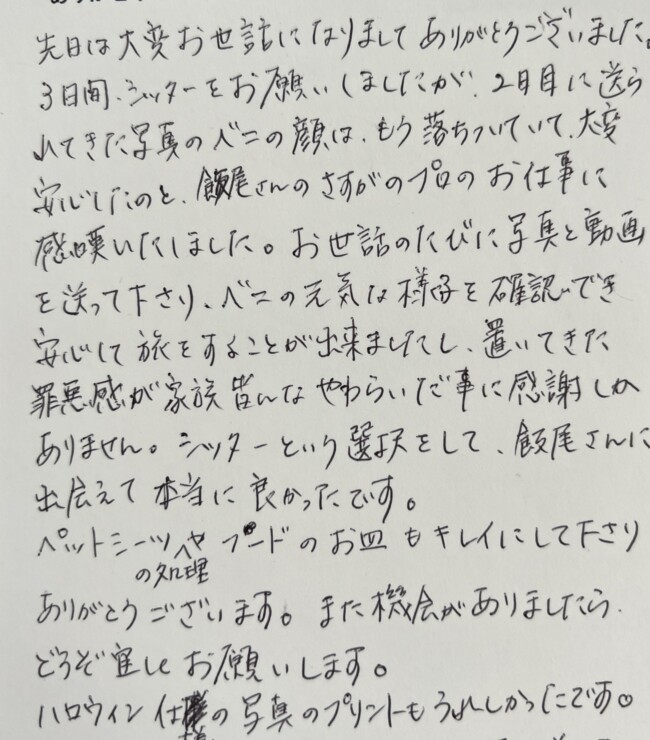 先日は大変お世話になりましてありがとうございました。
3日間、シッターをお願いしましたが、2日目に送ら
れてきた写真のベニの顔は、もう落ちついていて、大変
安心したのと、飯尾さんのさすがのプロのお仕事に
感嘆いたしました。お世話のたびに写真と動画
を送って下さり、ベニの元気な様子を確認でき
安心して旅をすることが出来ましたし、置いてきた
罪悪感が家族皆んなやわらいだ事に感謝しか
ありません。シッターという選択をして、飯尾さんに
出会えて本当に良かったです。
ペットシーツやフードのお皿もキレイにして下さり
の処理
ありがとうございます。また機会がありましたら、
どうぞ宜しくお願いします。
ハロウィン仕様の写真のプリントもうれしかったです。